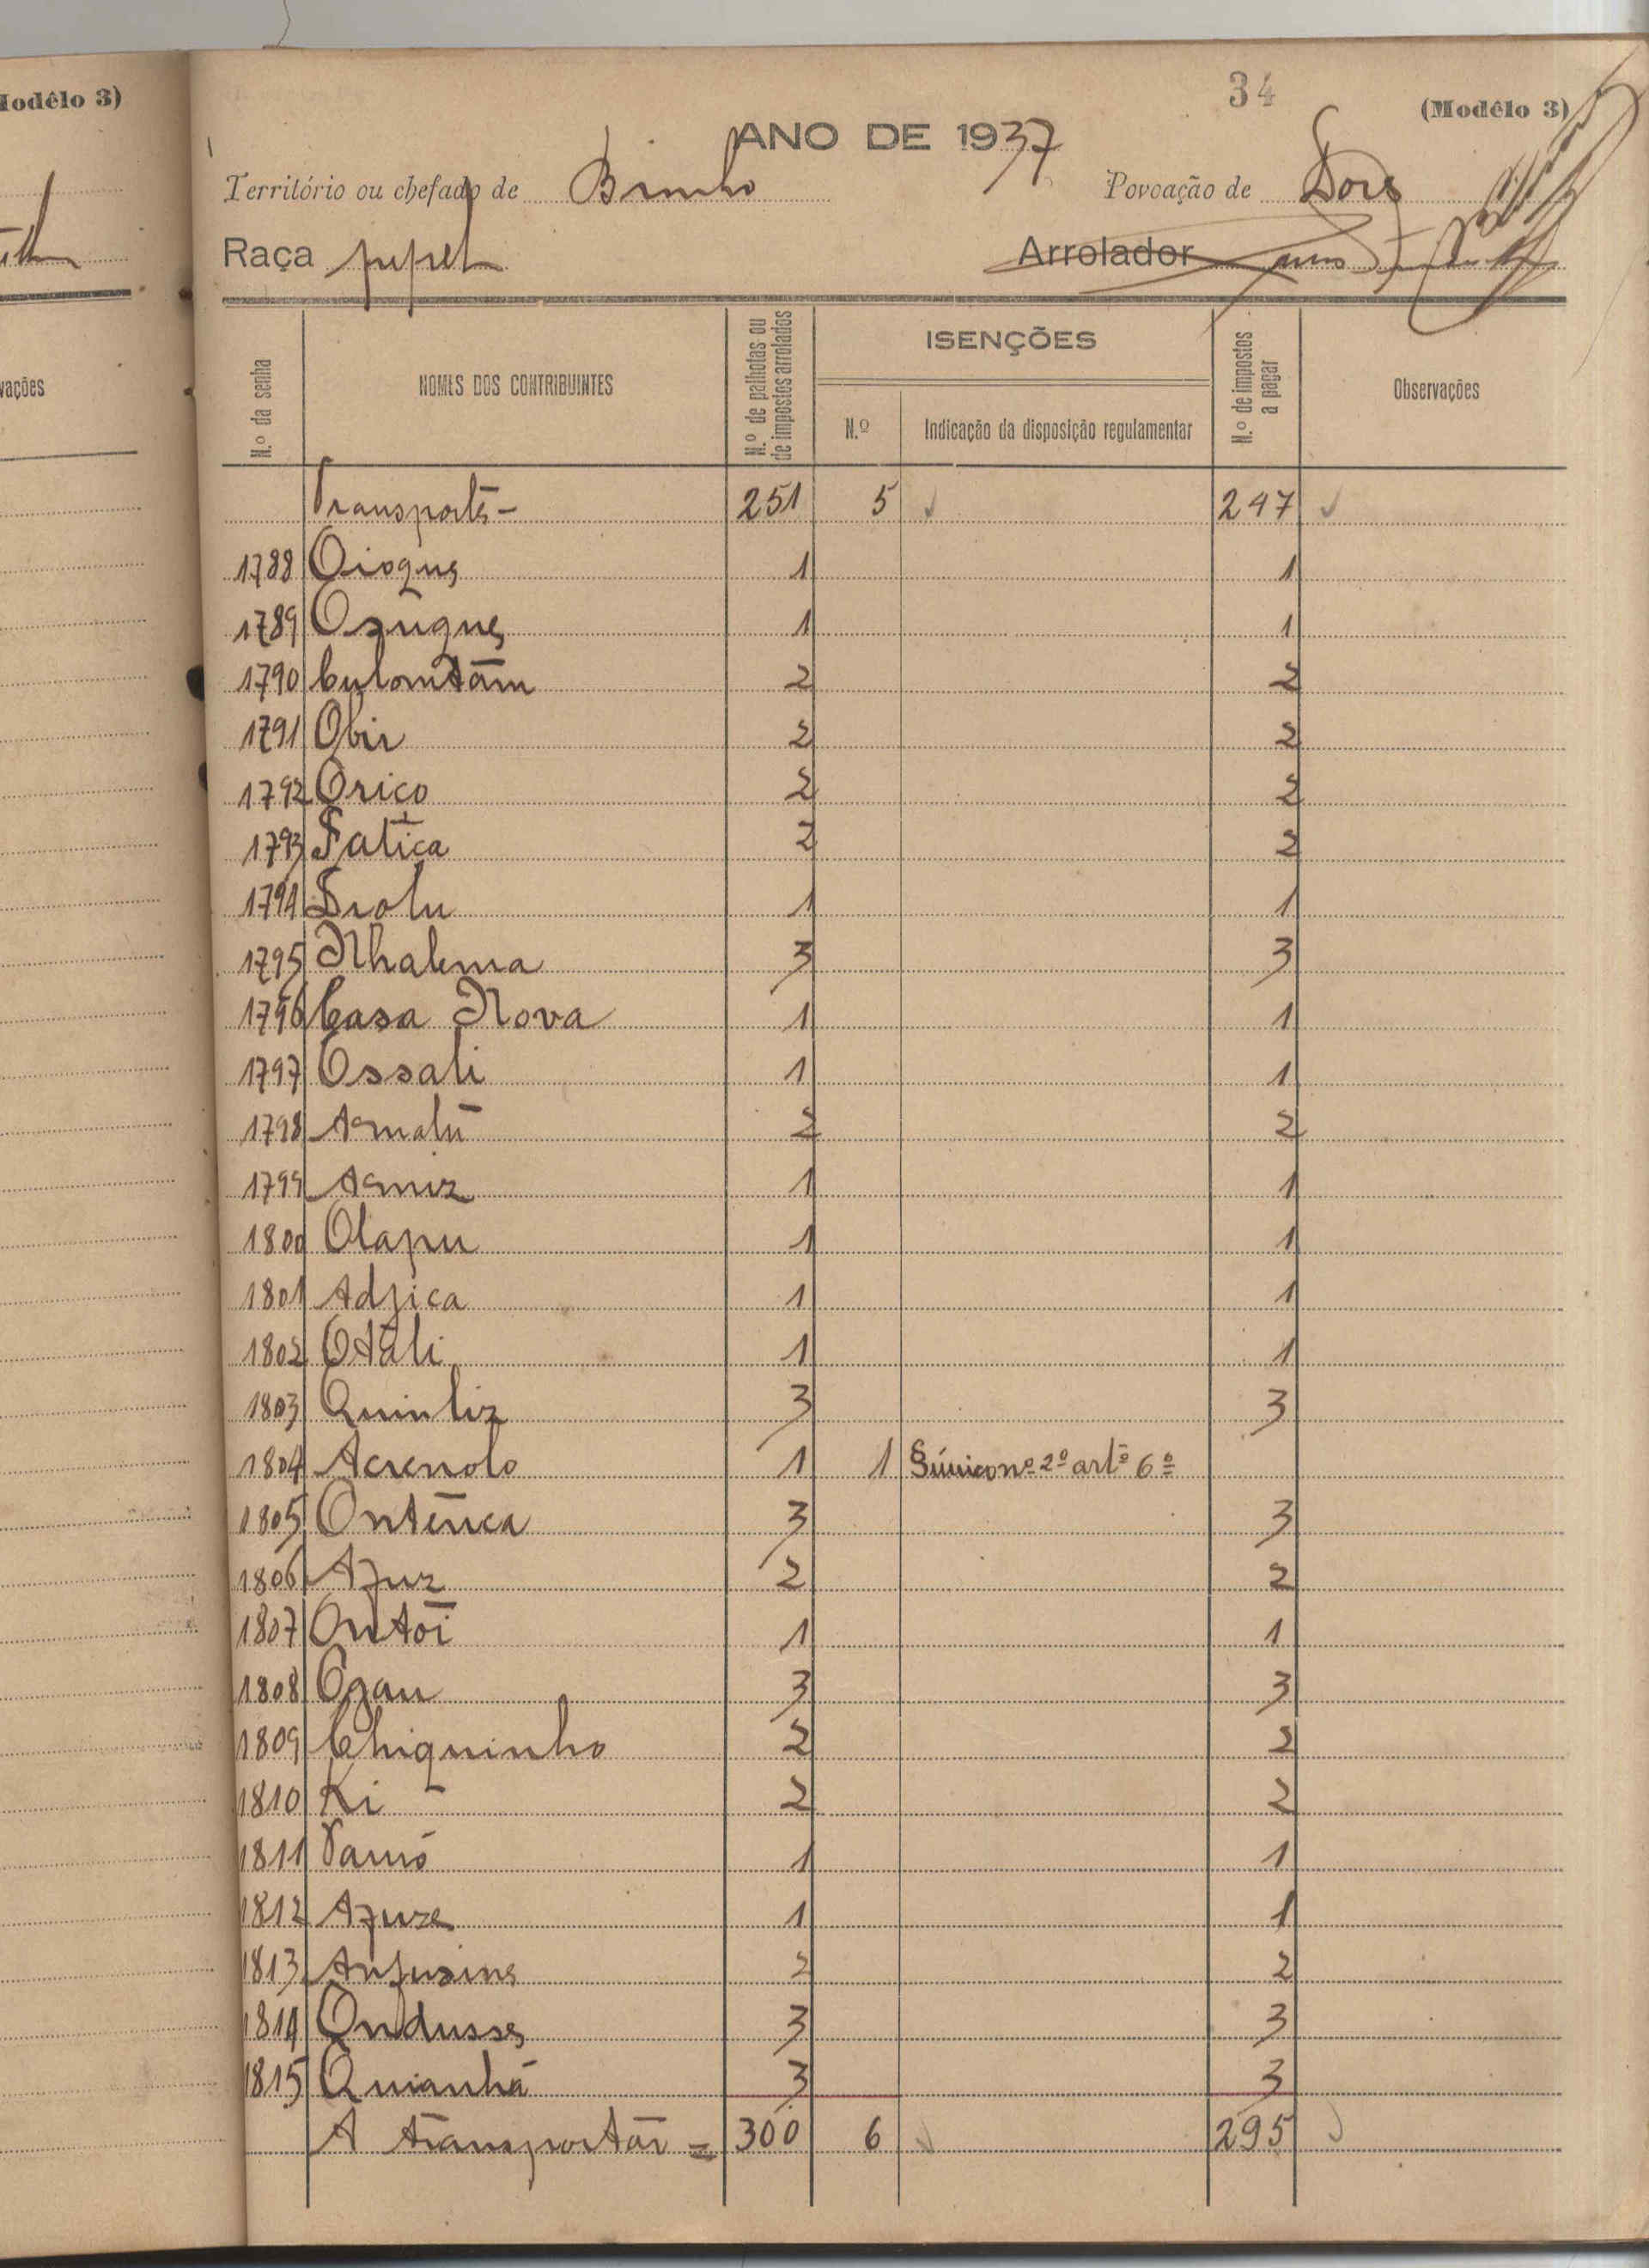 Modêlo 3)
vações
34
(Modêlo 3)
ANO DE 1937
Território ou chefado de Bimbo Povoação de Dois
Raça pepel Arrolador
N.º da senha NOMES DOS CONTRIBUINTES N.º de palhotas ou de impostos arrolados ISENÇÕES N.º de impostos a pagar Observações
N.º Indicação da disposição regulamentar
Transporte - 251 5 247
1788 Oioque 1 1
1789 Osuque 1 1
1790 2 2
1791 Obir 2 2
1792 Oriço 2 2
1793 Fatica 2 2
1794 1 1
1795 Nhalema 3 3
1796 Casa Nova 1 1
1797 Ossali 1 1
1798 Asmalu 2 2
1799 Asmiz 1 1
1800 Olapu 1 1
1801 Adjica 1 1
1802 Otali 1 1
1803 Quinliz 3 3
1804 Acrenolo 1 1 § único nº 2º artº 6º
1805 Ontenca 3 3
1806 Ajuz 2 2
1807 Ontoi 1 1
1808 3 3
1809 Chiquinho 2 2
1810 Ki 2 2
1811 1 1
1812 Ajuze 1 1
1813 2 2
1814 Ondusse 3 3
1815 Quianhá 3 3
A transportar = 300 6 295